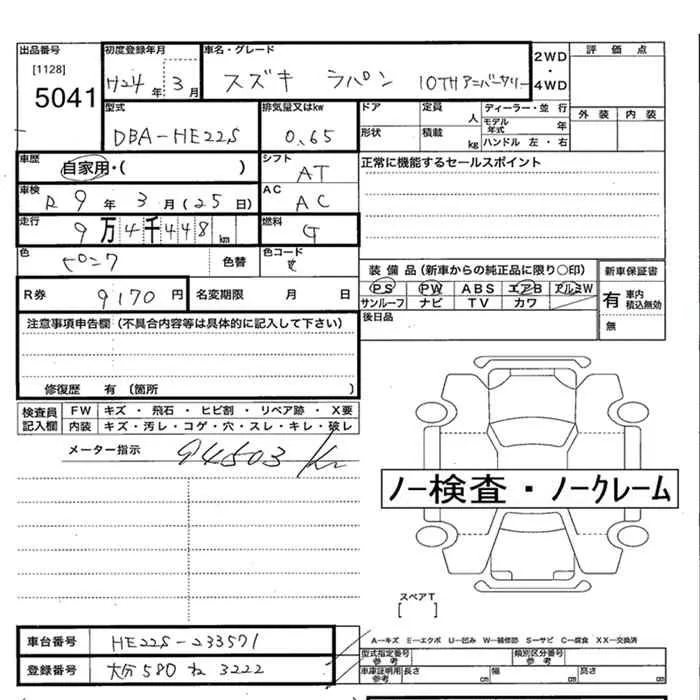 出品番号 初度登録年月 車名・グレード 2WD・4WD 評価点
[1128]
5041 H24年 3月 スズキ ラパン 10THアニバーサリー
型式 排気量又はkw ドア 定員 人 ディーラー・並行 外装 内装
DBA-HE22S 0.65 形状 積載 kg モデル年式 年
ハンドル 左・右
車歴 自家用・( ) シフト AT 正常に機能するセールスポイント
車検 R9年 3月(25日) AC AC
走行 9万4千448km 燃料 G
色 ピンク 色替 色コード
装備品(新車からの純正品に限り〇印) 新車保証書
R券 9170円 名変期限 月 日 PS PW ABS エアB アルミW 有 車内積込無効
サンルーフ ナビ TV カワ 無
注意事項申告欄(不具合内容等は具体的に記入して下さい) 後日品
修復歴 有 (箇所 )
検査員記入欄 FW キズ・飛石・ヒビ割・リペア跡・X要
内装 キズ・汚レ・コゲ・穴・スレ・キレ・破レ
メーター指示 94503km
ノー検査・ノークレーム
スペアT
[ ]
車台番号 HE22S-233571 A―キズ E―エクボ U―凹み W―補修跡 S―サビ C―腐食 XX―交換済
型式指定番号 参考 類別区分番号 参考
登録番号 大分 580 ね 3222 車庫証明用 参考 長さ cm 幅 cm 高さ cm